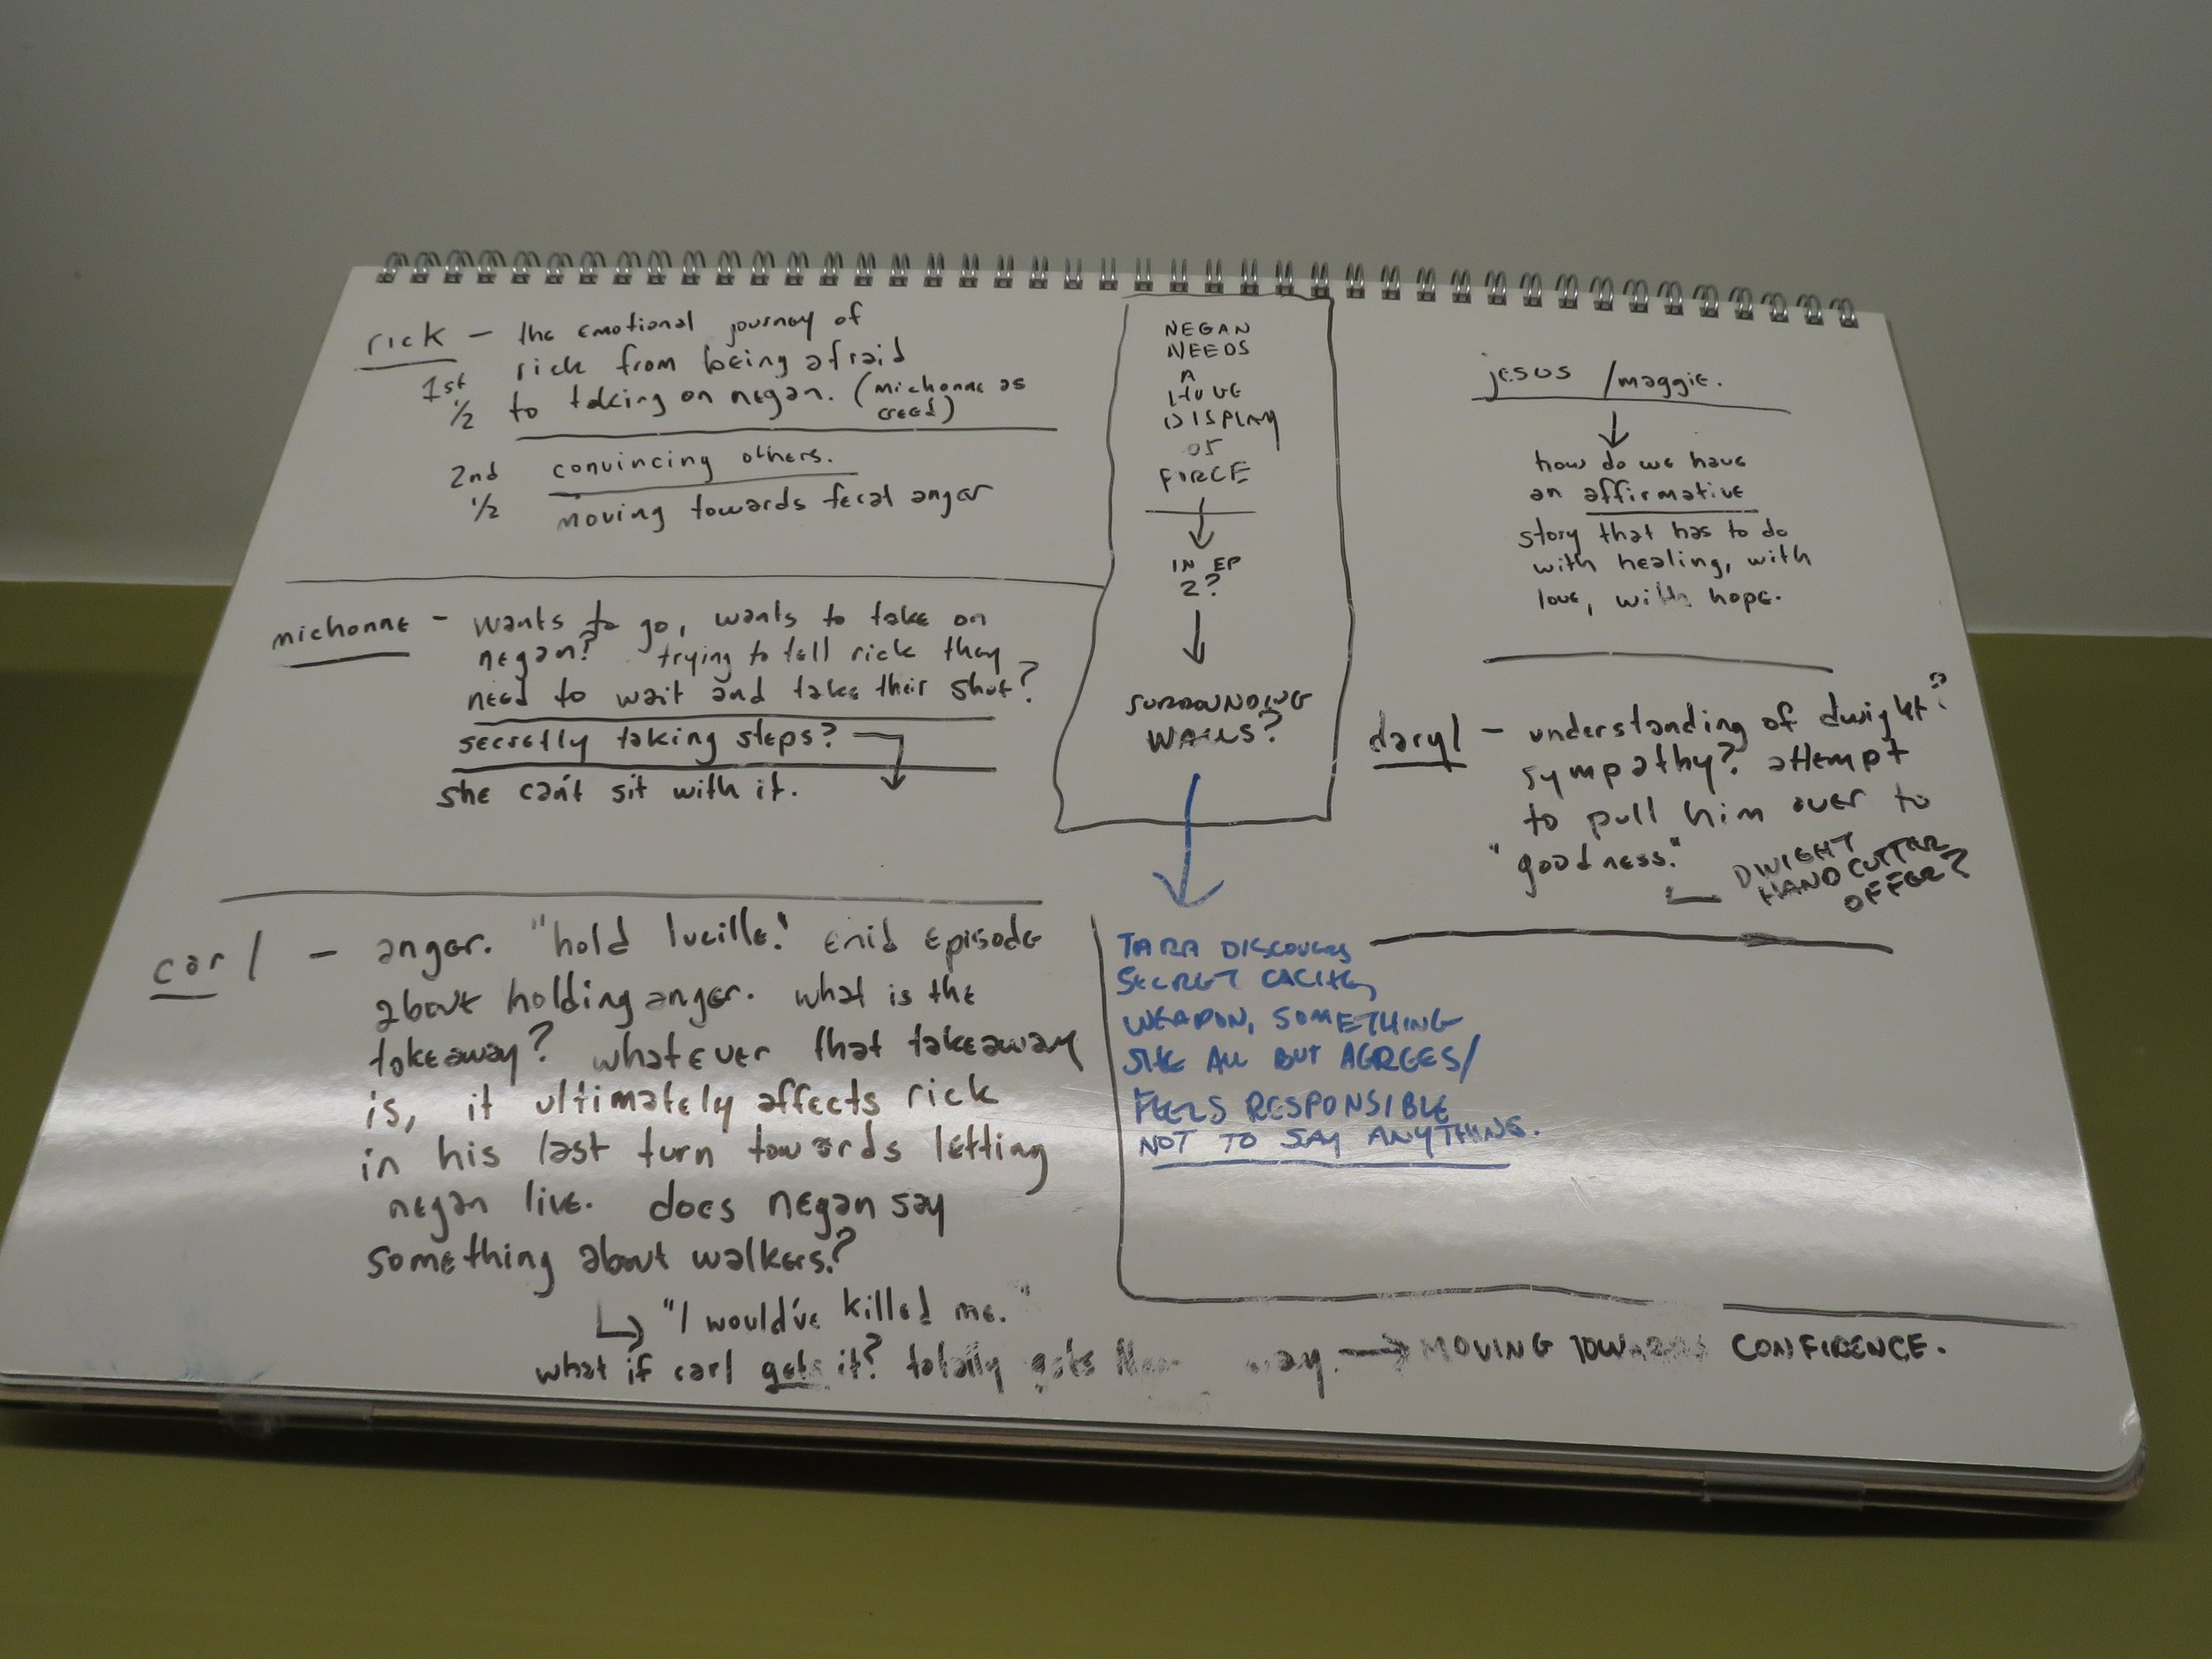 rick - the emotional journey of
rick from being afraid
1st 1/2 to taking on negan. (michonne as creed)
2nd 1/2 convincing others.
moving towards feral anger
michonne - wants to go, wants to take on
negan? trying to tell rick they
need to wait and take their shot?
secretly taking steps?
she can't sit with it.
carl - anger. "hold lucille." enid episode
about holding anger. what is the
takeaway? whatever that takeaway
is, it ultimately affects rick
in his last turn towards letting
negan live. does negan say
something about walkers?
"I would've killed me."
what if carl gets it? totally gets → MOVING TOWARDS CONFIDENCE.
NEGAN
NEEDS
A
HUGE
DISPLAY
OF
FORCE
IN EP
2?
SURROUNDING
WALLS?
TARA DISCOVERS
SECRET CACHE,
WEAPON, SOMETHING
SHE ALL BUT AGREES/
FEELS RESPONSIBLE
NOT TO SAY ANYTHING.
jesus /maggie.
how do we have
an affirmative
story that has to do
with healing, with
love, with hope.
daryl - understanding of dwight?
sympathy? attempt
to pull him over to
"goodness."
DWIGHT
HAND CUTTER
OFFER?